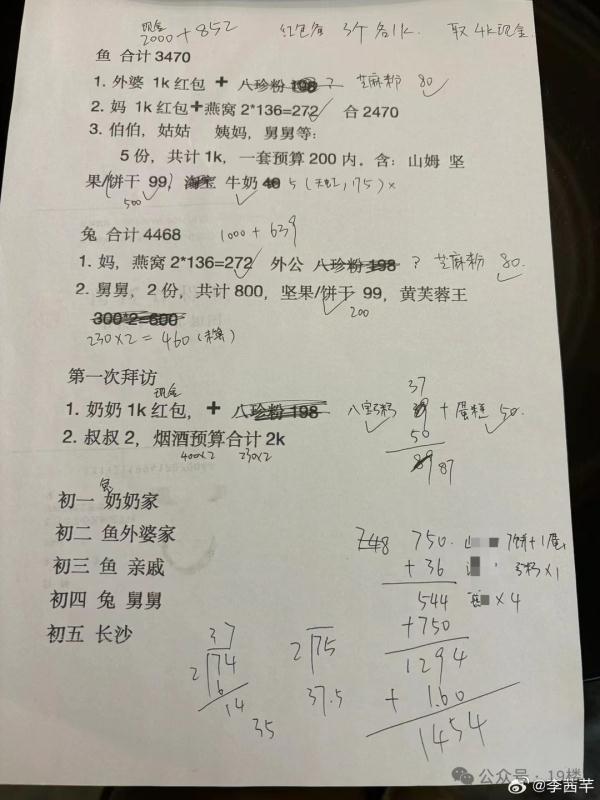 现金
2000+852 红包 3个各1k. 取4k现金.
鱼 合计3470
1. 外婆 1k 红包 + 八珍粉 198 ? 芝麻粉 80
2. 妈 1k 红包+燕窝 2*136=272 合 2470
3. 伯伯，姑姑 姨妈，舅舅等：
5 份，共计 1k，一套预算 200 内，含：山姆 坚
果/饼干 99，淘宝 牛奶 40 5 ( 175) ×
500
兔 合计 4468 1000+639
1. 妈，燕窝 2*136=272 外公 八珍粉 198 ? 芝麻粉 80.
2. 舅舅，2 份，共计 800，坚果/饼干 99，黄芙蓉王
300*2=600 200
230×2=460
第一次拜访
现金 37
1. 奶奶 1k 红包，+ 八珍粉 198 八宝粥 +蛋糕 50.
50
2. 叔叔 2，烟酒预算合计 2k 87
400×2 230×2
兔
初一 奶奶家
初二 鱼外婆家
初三 鱼 亲戚
初四 兔 舅舅
初五 长沙
748 750. 山 7饼+1蛋
+36 粥×1
544 ×4
+750
1294
+160
1454
37
2 74
6
14
35
2 75
37.5
公众号·19楼
@李茜芊